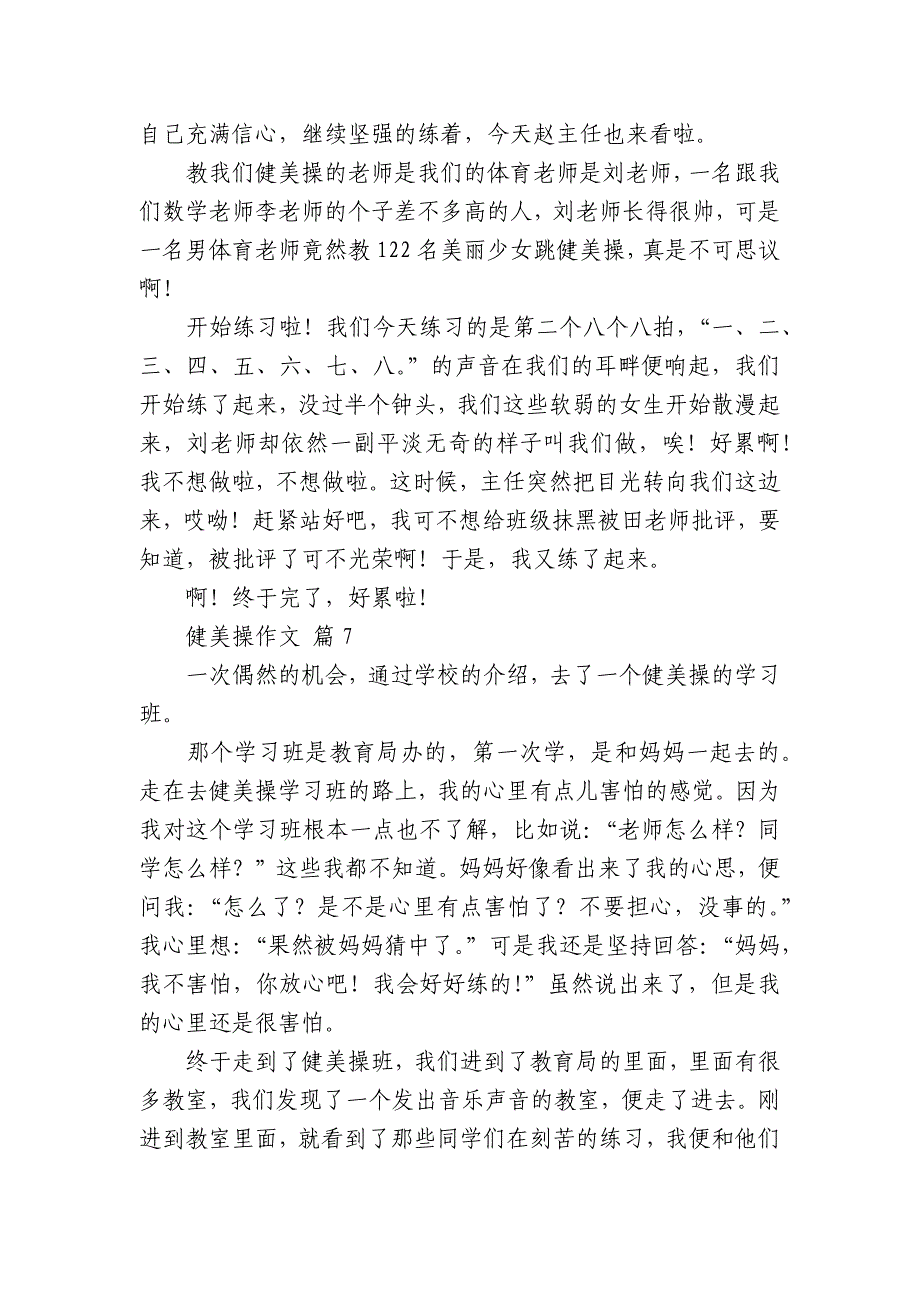 自己充满信心，继续坚强的练着，今天赵主任也来看啦。
教我们健美操的老师是我们的体育老师是刘老师，一名跟我
们数学老师李老师的个子差不多高的人，刘老师长得很帅，可是
一名男体育老师竟然教 122 名美丽少女跳健美操，真是不可思议
啊！
开始练习啦！我们今天练习的是第二个八个八拍，“一、二、
三、四、五、六、七、八。”的声音在我们的耳畔便响起，我们
开始练了起来，没过半个钟头，我们这些软弱的女生开始散漫起
来，刘老师却依然一副平淡无奇的样子叫我们做，唉！好累啊！
我不想做啦，不想做啦。这时候，主任突然把目光转向我们这边
来，哎呦！赶紧站好吧，我可不想给班级抹黑被田老师批评，要
知道，被批评了可不光荣啊！于是，我又练了起来。
啊！终于完了，好累啦！
健美操作文 篇 7
一次偶然的机会，通过学校的介绍，去了一个健美操的学习
班。
那个学习班是教育局办的，第一次学，是和妈妈一起去的。
走在去健美操学习班的路上，我的心里有点儿害怕的感觉。因为
我对这个学习班根本一点也不了解，比如说：“老师怎么样？同
学怎么样？”这些我都不知道。妈妈好像看出来了我的心思，便
问我：“怎么了？是不是心里有点害怕了？不要担心，没事的。”
我心里想：“果然被妈妈猜中了。”可是我还是坚持回答：“妈妈，
我不害怕，你放心吧！我会好好练的！”虽然说出来了，但是我
的心里还是很害怕。
终于走到了健美操班，我们进到了教育局的里面，里面有很
多教室，我们发现了一个发出音乐声音的教室，便走了进去。刚
进到教室里面，就看到了那些同学们在刻苦的练习，我便和他们